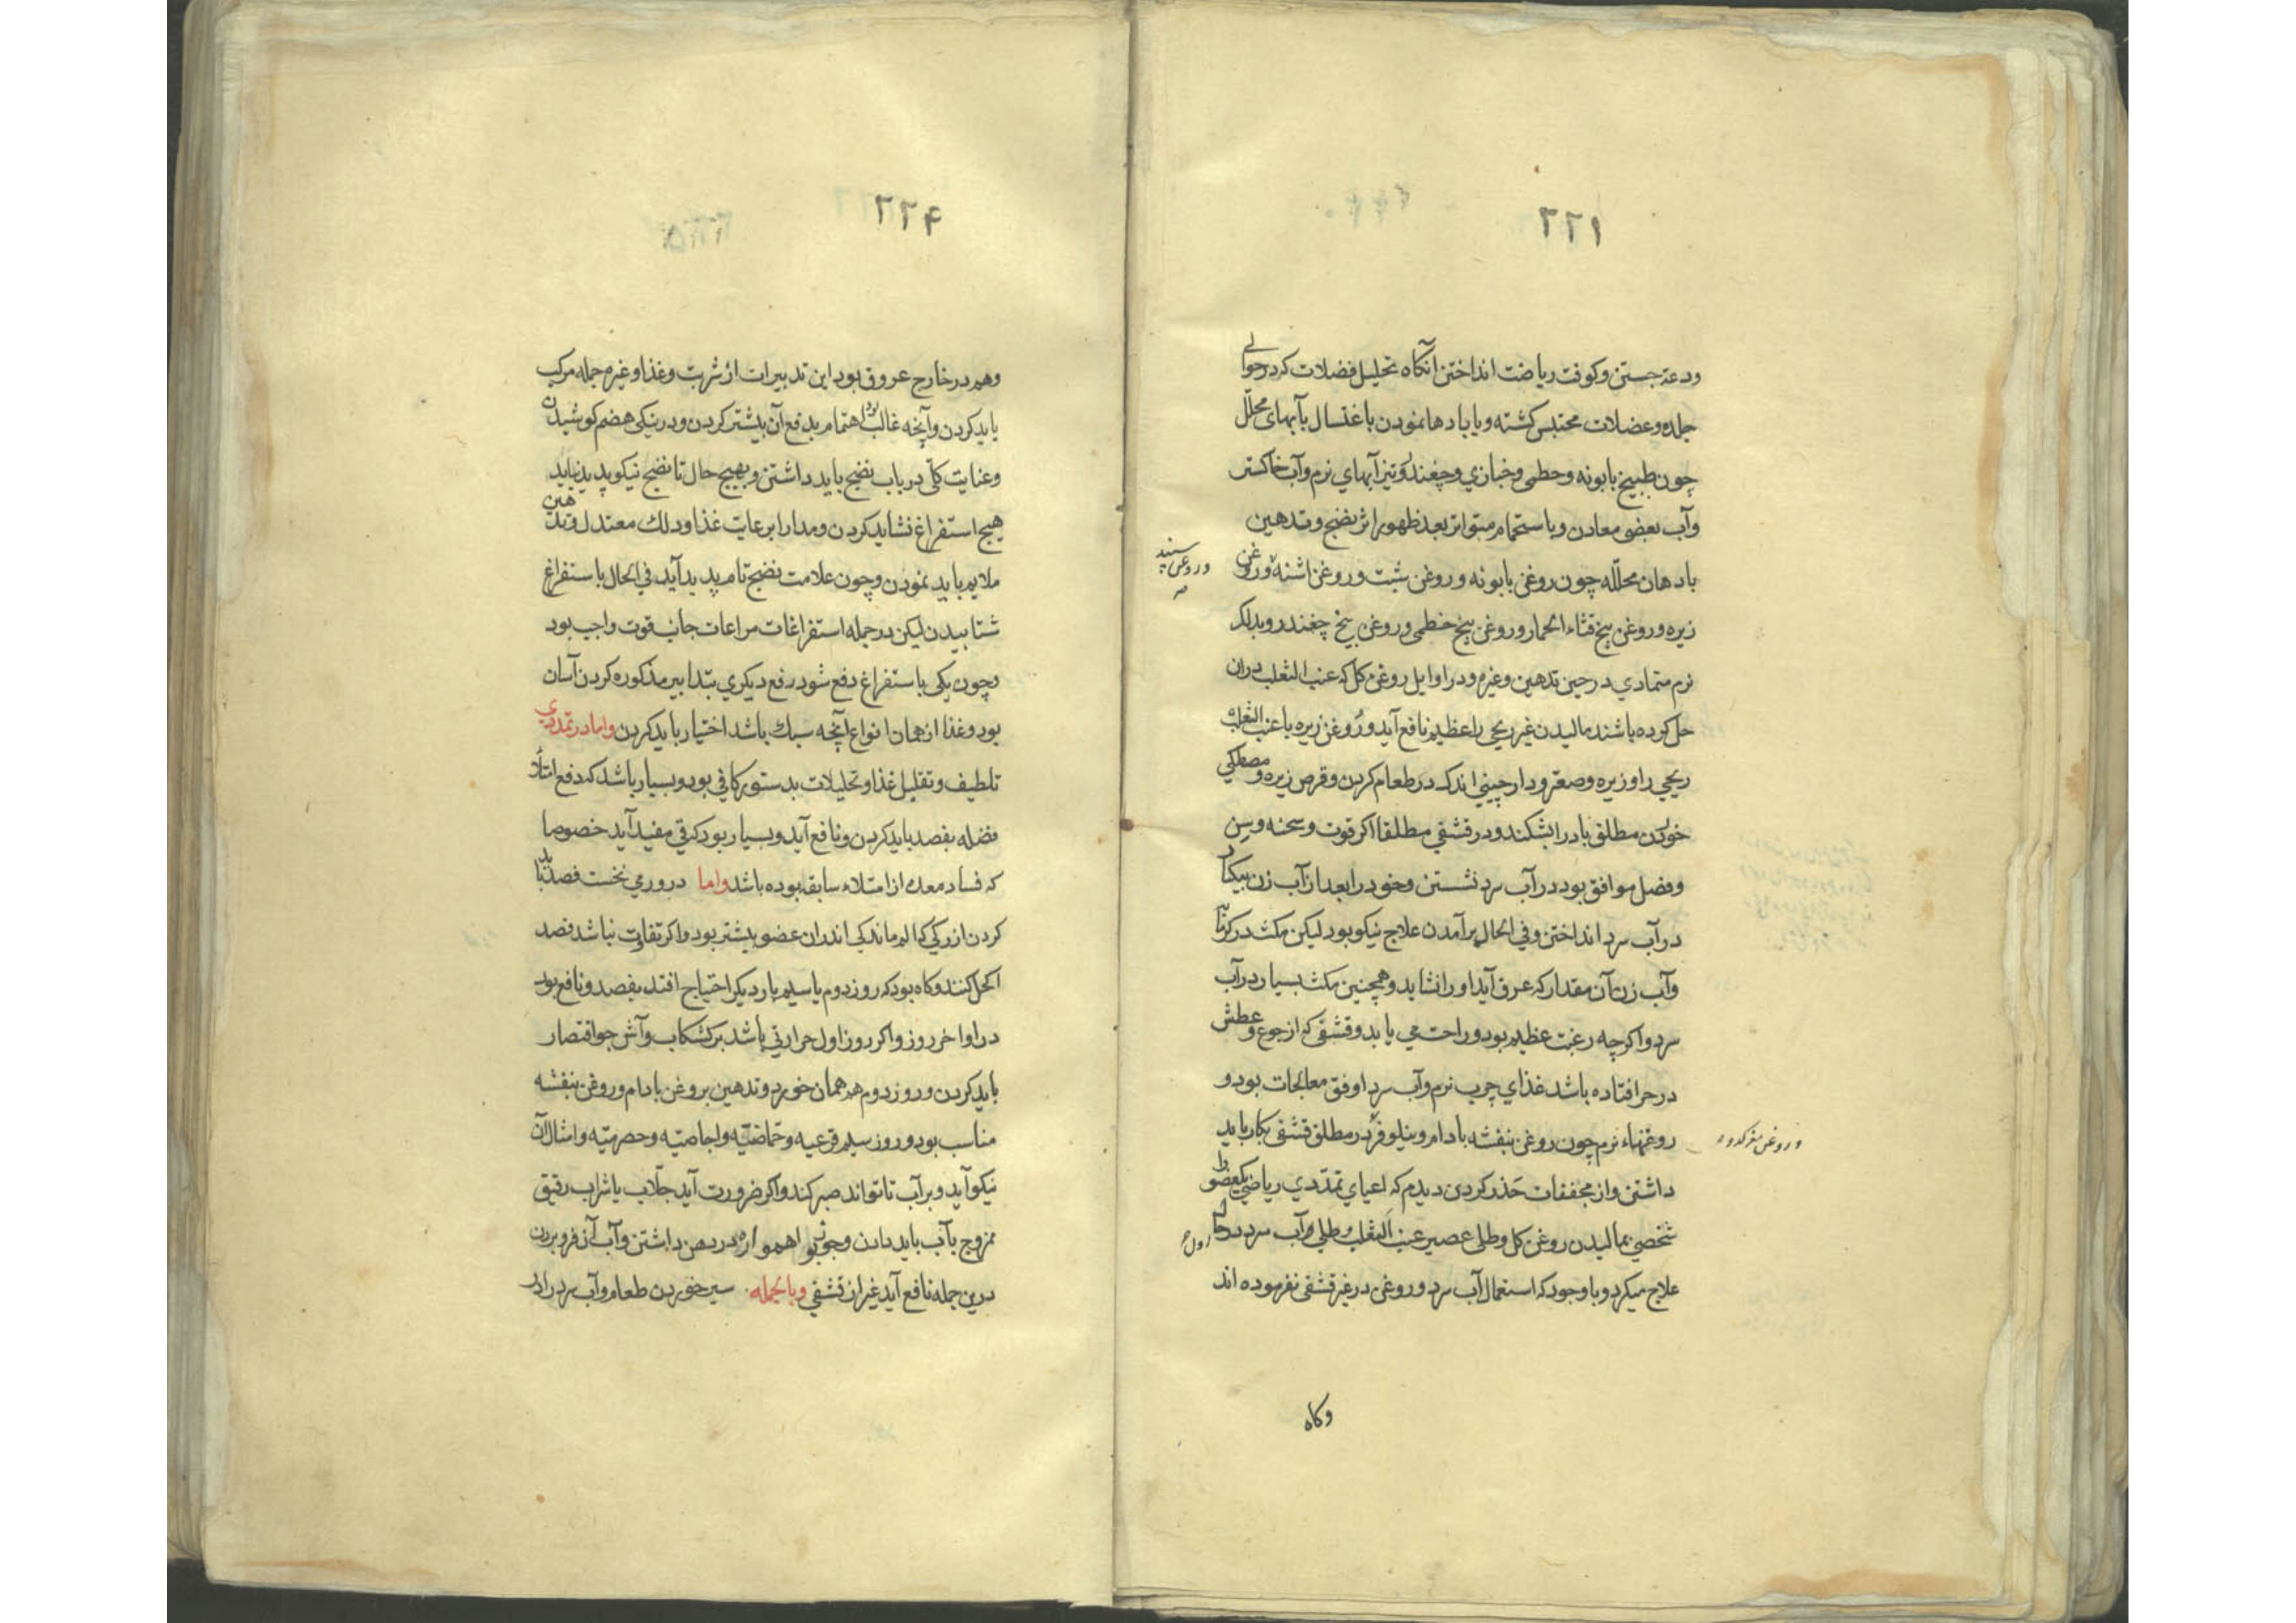 ۲۲۱
ودعة جستن وکوفت ریاضت انداختن آنکاه تحلیل فضلات که در حوالی
جلد و عضلات محتبس کشته و یا بادها نمودن باغتسال بآبهای محلّل
چون طبیخ بابونه وخطمی وخبازی وچغندر ونیز آبهای نرم وآب خاکستر
وآب بعضی معادن وباستحمام متواتر بعد ظهور اثر نضج وتدهین
بادهان محلّله چون روغن بابونه و روغن شبت و روغن اشنه وروغن
وروغن سپند
زیره وروغن بیخ قثاء الحمار وروغن بیخ خطمی وروغن بیخ چغندر وبدلک
نرم متمادی در حین تدهین وغیره ودر اوایل روغن کل که عنب الثعلب دران
حل کرده باشند مالیدن غیر ریحی را عظیم نافع آید وروغن زیره با عنب الثعلب
ریحی را وزیره وصعتر ودارچینی اندک در طعام کردن وقرص زیره ومصطکی
خوردن مطلق باد را بشکند ودر قشفی مطلقا اکر قوت وسحنه وسن
وفصل موافق بود در آب سرد نشستن وخود را بعد از آب زن بیکبار
در آب سرد انداختن وفی الحال برآمدن علاج نیکو بود لیکن مکث در کرمابه
وآب زن آن مقدار که عرق آید او را نشاید وهمچنین مکث بسیار در آب
سرد واکرچه رغبت عظیم بود وراحت می یابد وقشفی که از جوع وعطش
در حر افتاده باشد غذای چرب نرم وآب سرد اوفق معالجات بود و
روغنهاء نرم چون روغن بنفشه بادام ونیلوفر در مطلق قشفی بکار باید
وروغن مغز کدو
داشتن واز مجففات حذر کردن دیدم که اعیای تمدّدی ریاضی یکعضو را
شخصی بمالیدن روغن کل وطلی عصیر عنب الثعلب وطلی وآب سرد در حال
علاج میکرد وباوجود که استعمال آب سرد وروغن در غیر قشفی نفرموده اند
وکاه
۲۲۴
وهم در خارج عروق بود این تدبیرات از شربت وغذا وغیره جمله مرکب
باید کردن وآنچه غالب بود اهتمام بدفع آن بیشتر کردن ودر نیکی هضم کوشیدن
وعنایت کلّی در باب نضج باید داشتن وبهیچ حال تا نضج نیکو پدید نیاید
هیچ استفراغ نشاید کردن ومدار ابر عایت غذا ودلک معتدل وتدهین
ملایم باید نمودن وچون علامت نضج تام پدید آید فی الحال باستفراغ
شتابیدن لیکن در جمله استفراغات مراعات جانب قوت واجب بود
وچون یکی باستفراغ دفع شود رفع دیکری بتدابیر مذکوره کردن آسان
بود وغذا از همان انواع آنچه سبک باشد اختیار باید کردن واما در تمددی
تلطیف وتقلیل غذا وتحلیلات بدستور کافی بود وبسیار باشد که دفع امتلاء
فضله بفصد باید کردن ونافع آید وبسیار بود که قی مفید آید خصوصا
که فساد معده از امتلاء سابقه بوده باشد واما درورمی نخست فصد باید
کردن از رکی که الم ماندکی اندران عضو بیشتر بود واکر تفاوت نباشد فصد
اکحل کنند وکاه بود که روز دوم یا سیم بار دیکر احتیاج افتد بفصد ونافع بود
در اواخر روز واکر روز اول حرارتی باشد بر کشکاب وآش جو اقتصار
باید کردن وروز دوم هم همان خورد وتدهین بروغن بادام وروغن بنفشه
مناسب بود وروز سیم قرعیه وحمّاضیّه واجاصیّه وحصرمیّه وامثال آن
نیکو آید وبر آب تا تواند صبر کند واکر ضرورت آید جلّاب یا شراب رقیق
ممزوج بآب باید دادن وجو اهمواره در دهن داشتن وآب آن فرو بردن
درین جمله نافع آید غیر از قشفی وبالجمله سیر خوردن طعام وآب سرد را در